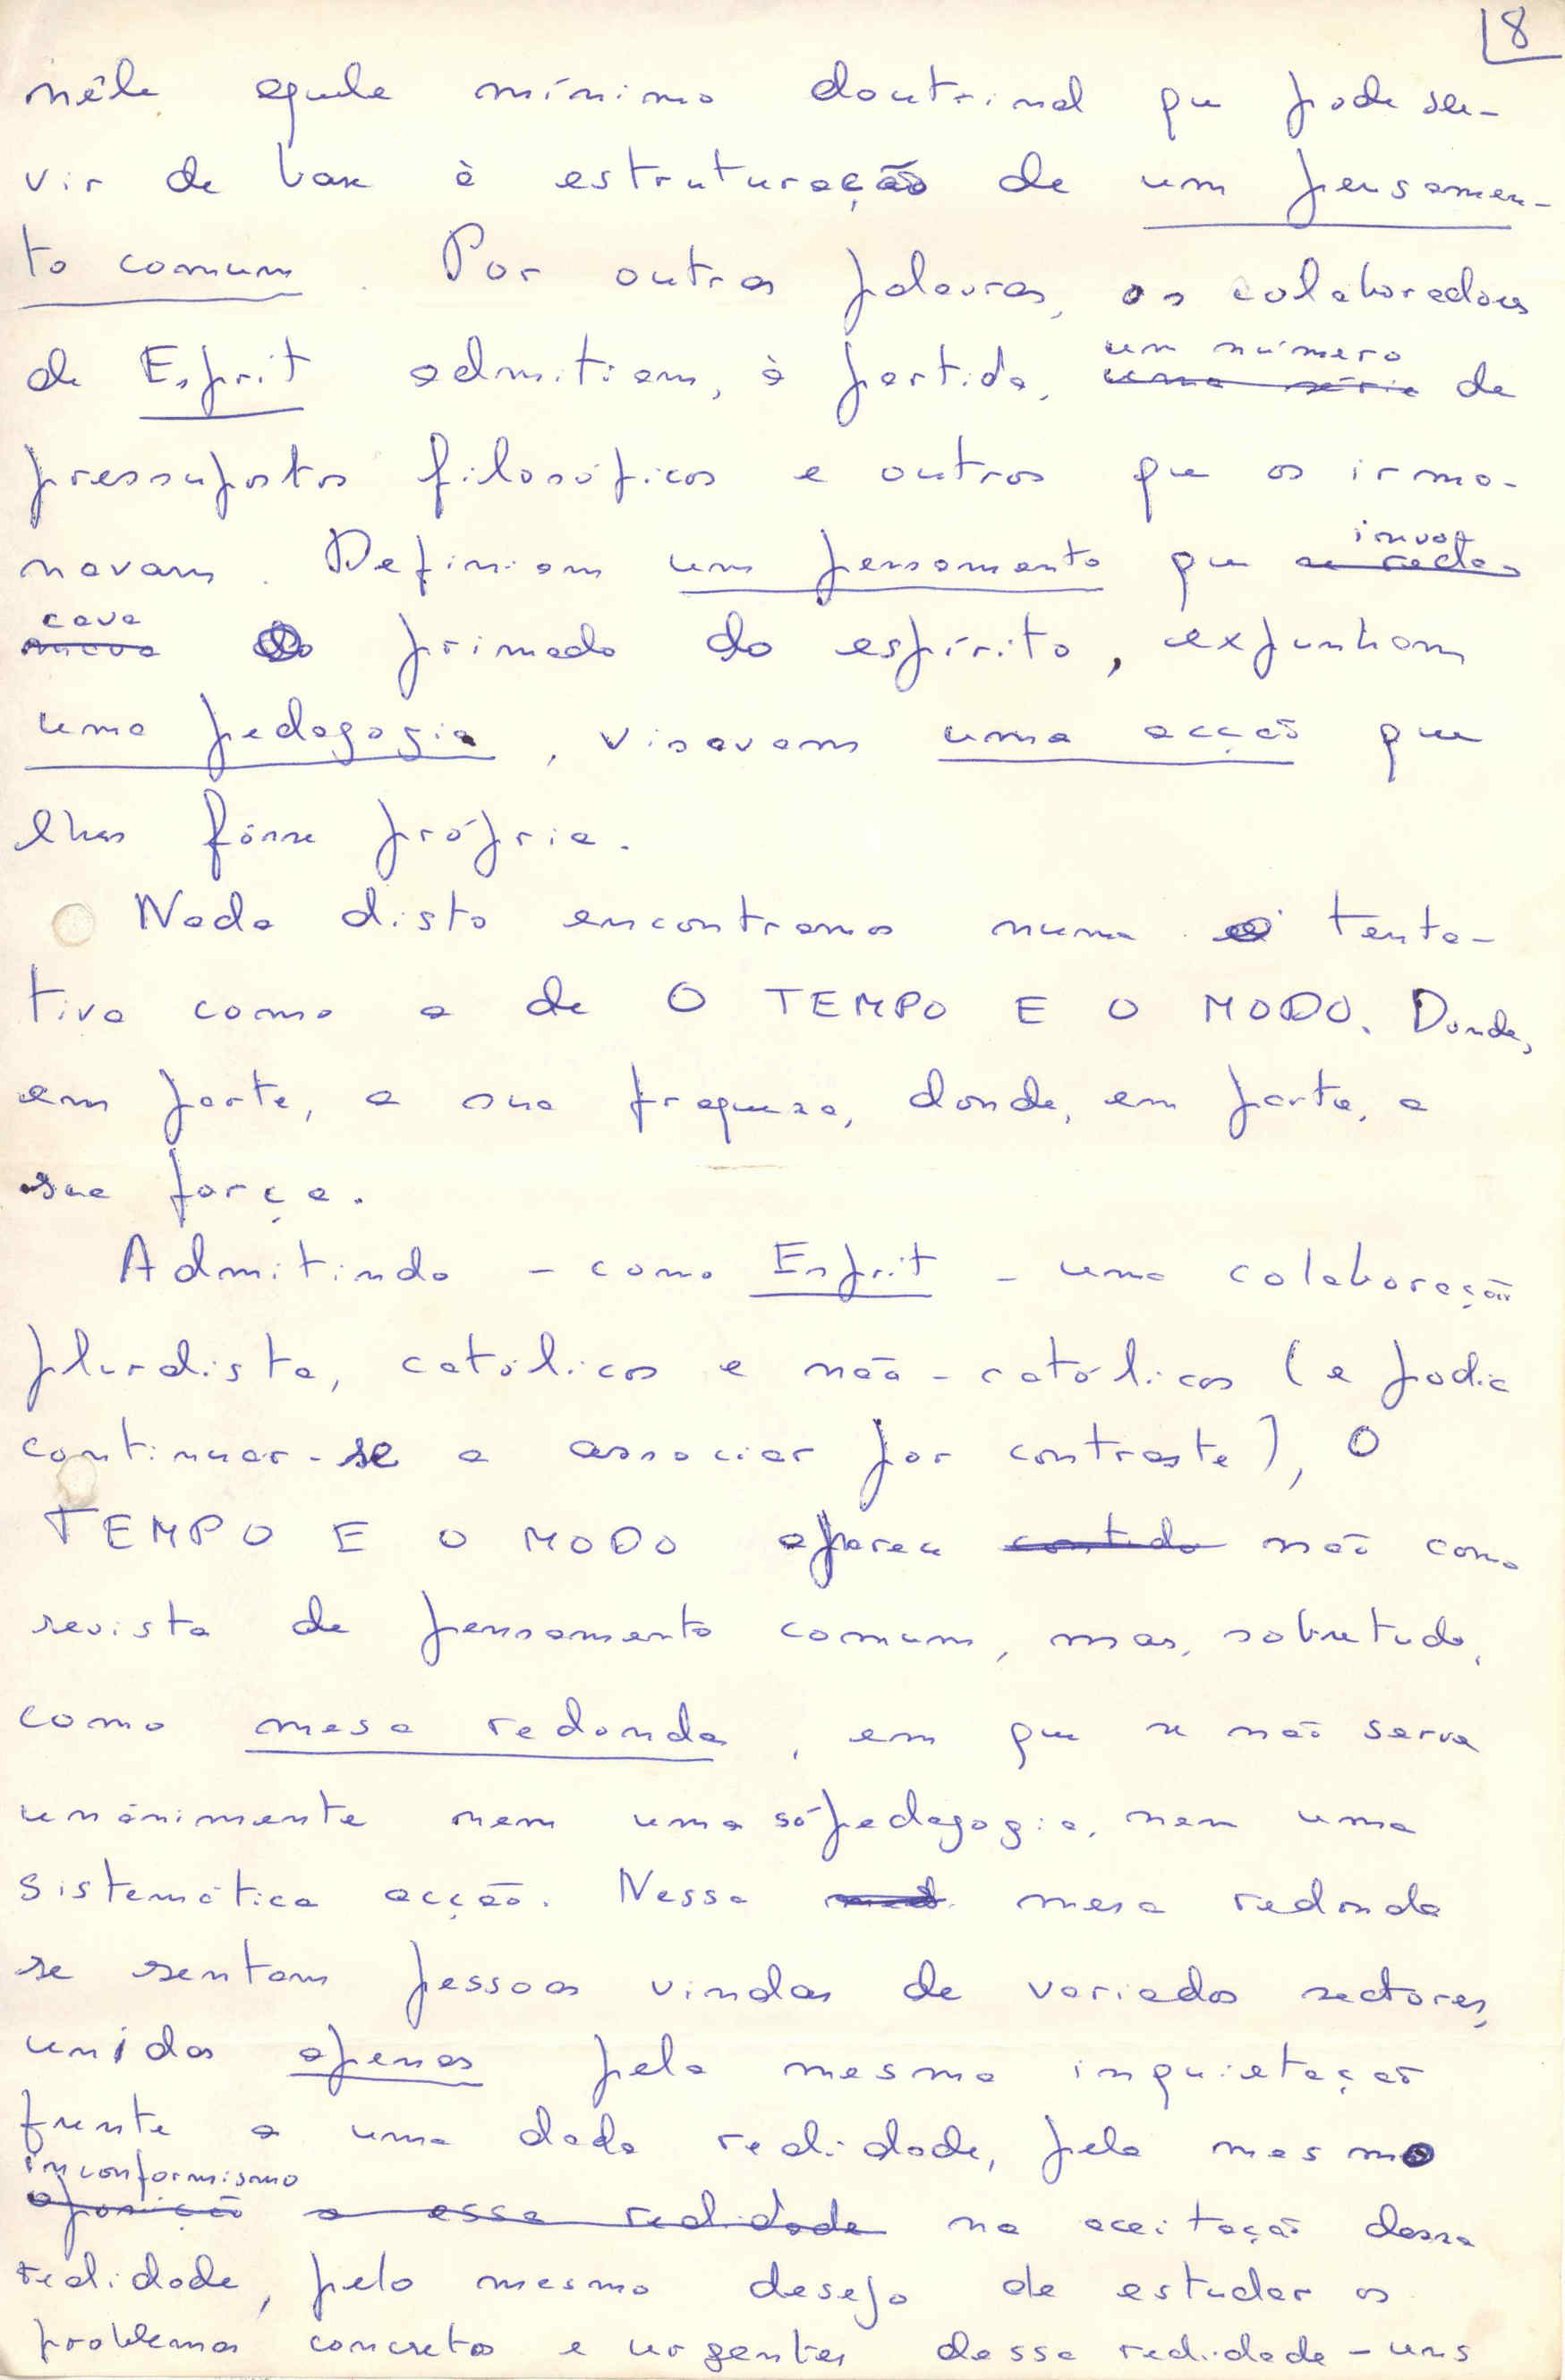 8
nêle aquele mínimo doutrinal que pode ser-
vir de base à estruturação de um pensamen-
to comum. Por outras palavras, os colaboradores
um número
de Esprit admitiam, à partida, uma série de
pressupostos filosóficos e outros que os irma-
invo
navam. Definiam um pensamento que
cava
primado do espírito, expunham
uma pedagogia, visavam uma acção que
lhes fôsse própria.
Nada disto encontramos numa tenta-
tiva como a de O TEMPO E O MODO. Donde,
em parte, a sua fraqueza, donde, em parte, a
sua força.
Admitindo - como Esprit - uma colaboração
pluralista, católicos e não-católicos (e podia
continuar-se a associar por contraste), O
TEMPO E O MODO aparece contudo não como
revista de pensamento comum, mas, sobretudo,
como mesa redonda, em que se não serve
unânimente nem uma só pedagogia, nem uma
sistemática acção. Nessa mesa redonda
se sentam pessoas vindas de variados sectores,
unidas apenas pela mesma inquietação
frente a uma dada realidade, pelo mesmo
inconformismo
oposição a essa realidade na aceitação dessa
realidade, pelo mesmo desejo de estudar os
problemas concretos e urgentes dessa realidade - uns